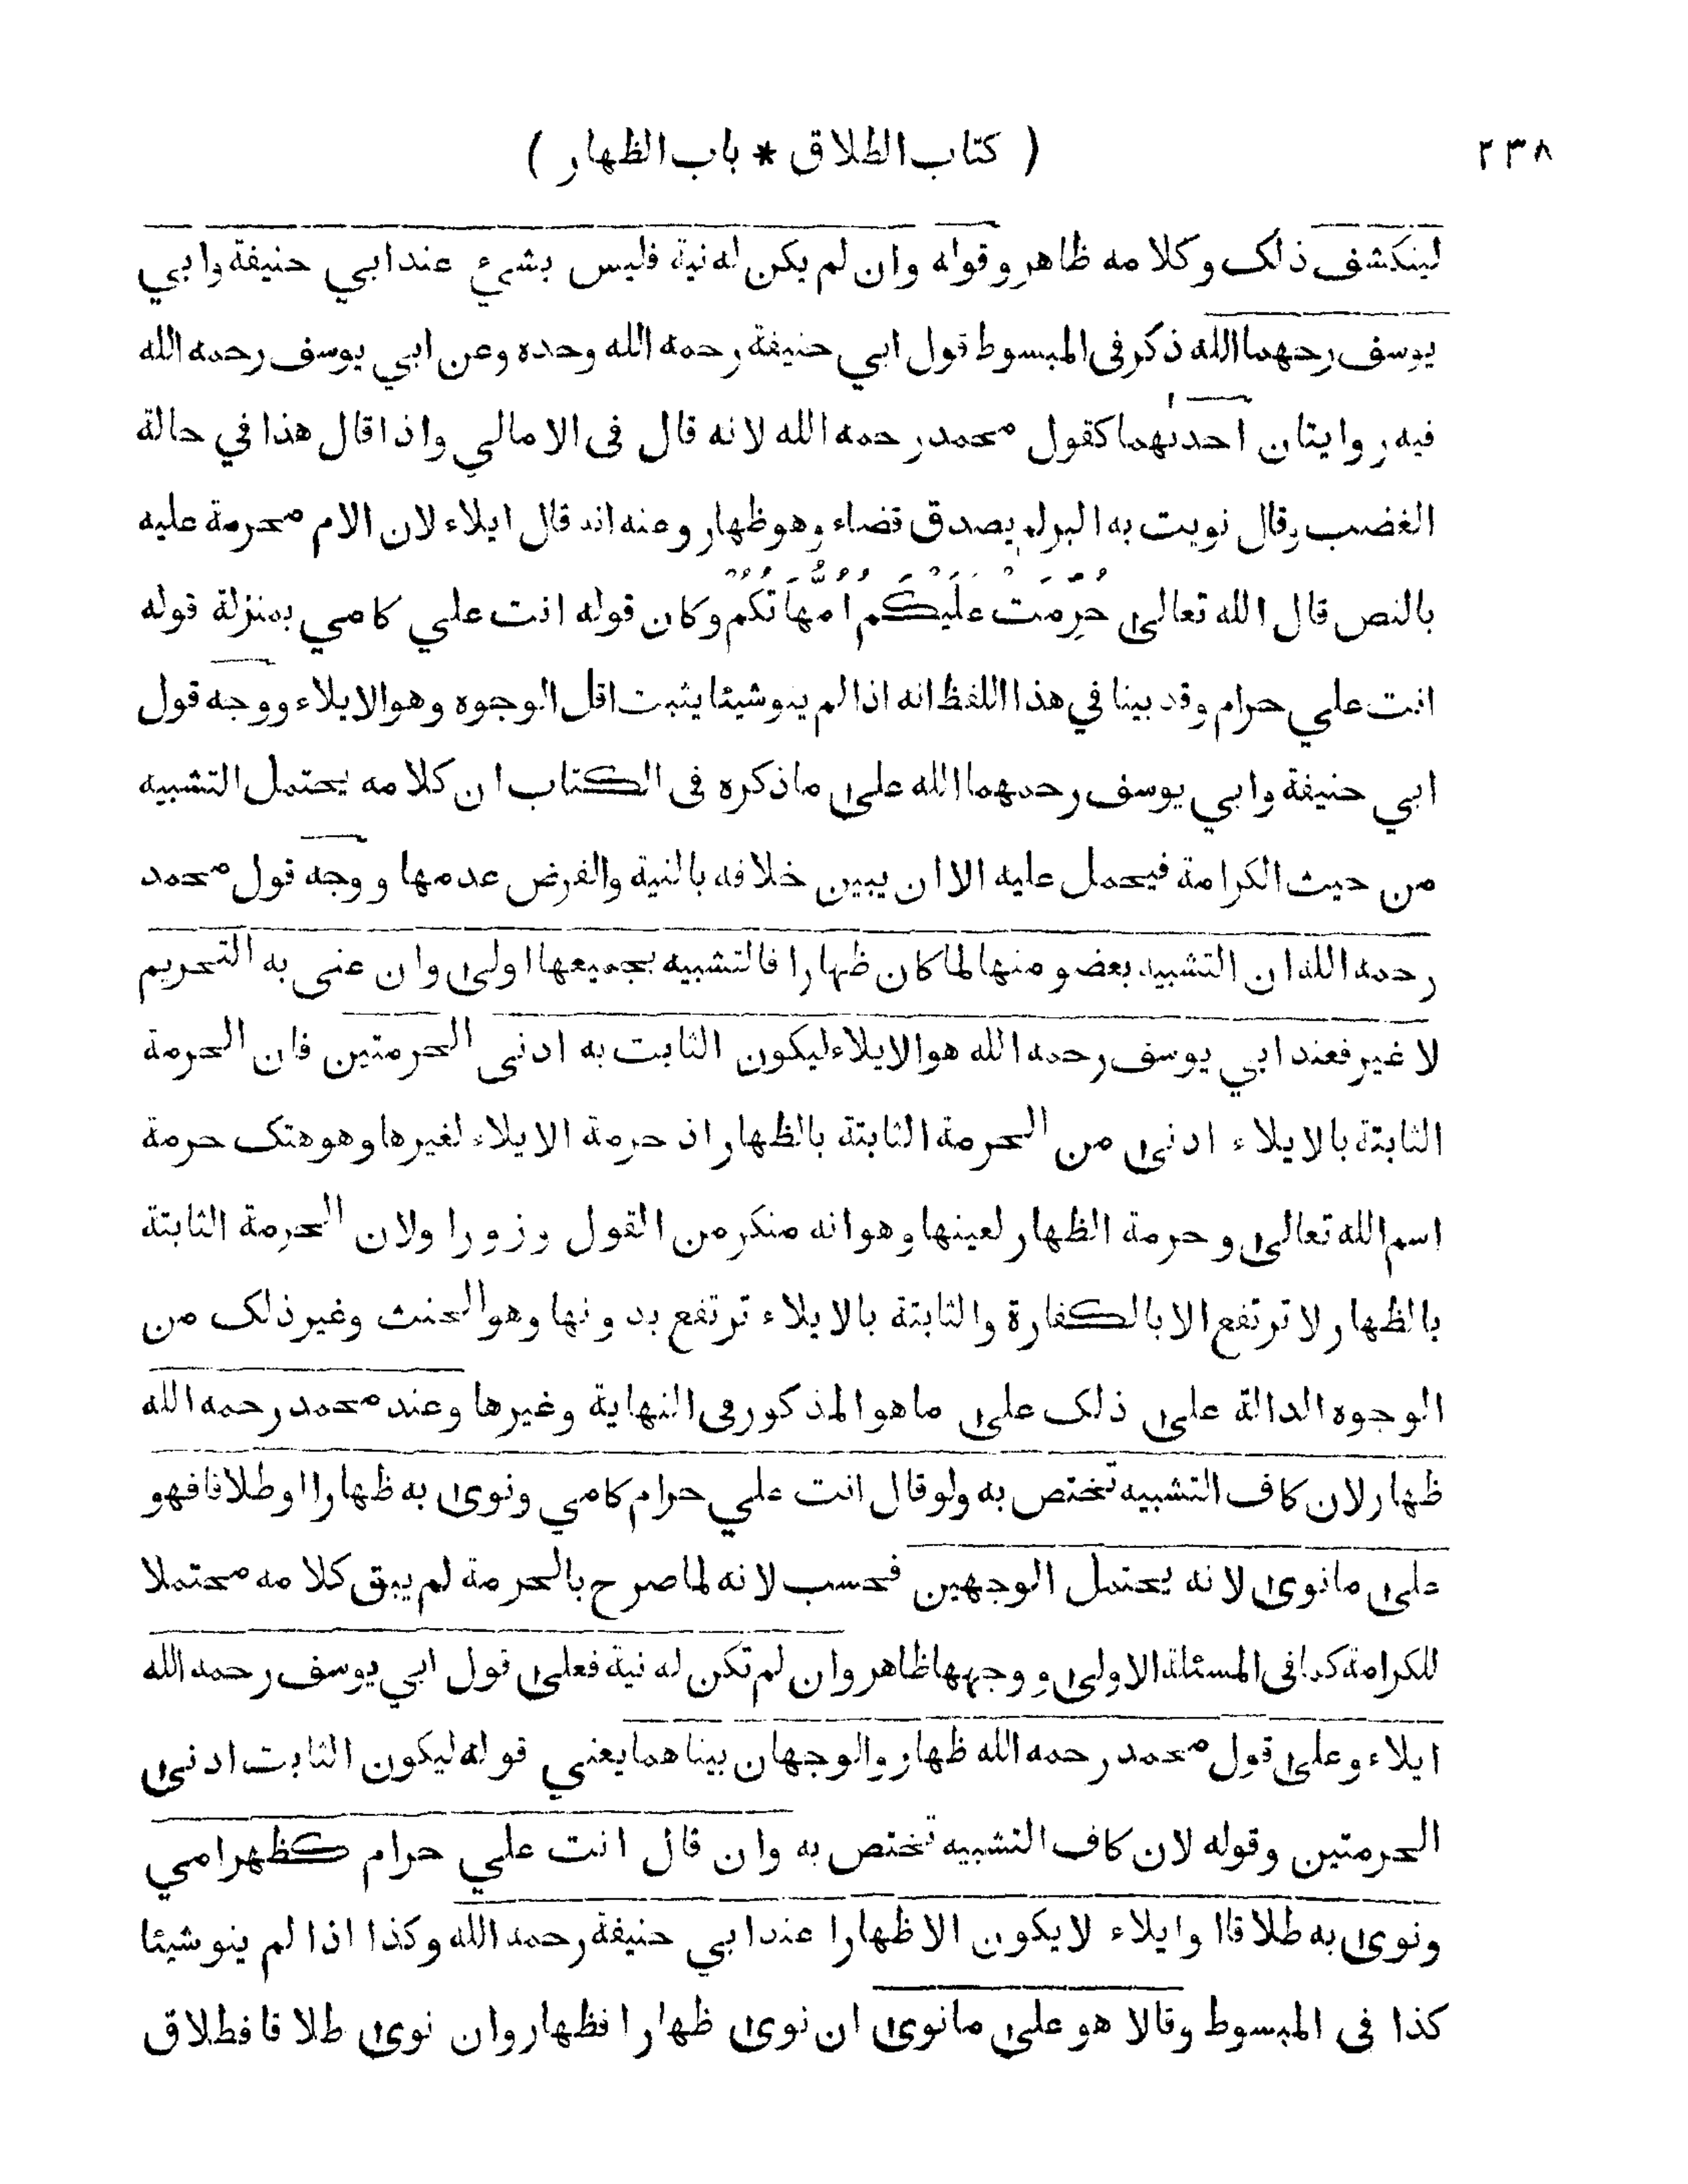 ٢٣٨
( كتاب الطلاق * باب الظهار )
لينكشف ذلك وكلامه ظاهر وقوله وان لم يكن له نية فليس بشيء عند ابي حنيفة وابي
يوسف رحمهما الله ذكر فى المبسوط قول ابي حنيفة رحمه الله وحده وعن ابي يوسف رحمه الله
فيه روايتان احدىهما كقول محمد رحمه الله لانه قال فى الامالي واذا قال هذا في حالة
الغضب وقال نويت به البر لم يصدق قضاء وهو ظهار وعنه انه قال ايلاء لان الام محرمة عليه
بالنص قال الله تعالى حُرِّمَتْ عَلَيْكُمْ اُمَّهَاتُكُمْ وكان قوله انت علي كامي بمنزلة قوله
انت علي حرام وقد بينا في هذا اللفظ انه اذا لم ينو شيئا يثبت اقل الوجوه وهو الايلاء ووجه قول
ابي حنيفة وابي يوسف رحمهما الله على ما ذكره فى الكتاب ان كلامه يحتمل التشبيه
من حيث الكرامة فيحمل عليه الا ان يبين خلافه بالنية والفرض عدمها ووجه قول محمد
رحمه الله ان التشبيه بعضو منها لما كان ظهارا فالتشبيه بجميعها اولى وان عنى به التحريم
لا غير فعند ابي يوسف رحمه الله هو الايلاء ليكون الثابت به ادنى الحرمتين فان الحرمة
الثابتة بالايلاء ادنى من الحرمة الثابتة بالظهار اذ حرمة الايلاء لغيرها وهو هتك حرمة
اسم الله تعالى وحرمة الظهار لعينها وهو انه منكر من القول وزورا ولان الحرمة الثابتة
بالظهار لا ترتفع الا بالكفارة والثابتة بالايلاء ترتفع بدونها وهو الحنث وغير ذلك من
الوجوه الدالة على ذلك على ما هو المذكور فى النهاية وغيرها وعند محمد رحمه الله
ظهار لان كاف التشبيه تختص به ولو قال انت علي حرام كامي ونوى به ظهارا او طلاقا فهو
على ما نوى لانه يحتمل الوجهين فحسب لانه لما صرح بالحرمة لم يبق كلامه محتملا
للكرامة كما فى المسئلة الاولى ووجهها ظاهر وان لم تكن له نية فعلى قول ابي يوسف رحمه الله
ايلاء وعلى قول محمد رحمه الله ظهار والوجهان بيناهما يعني قوله ليكون الثابت ادنى
الحرمتين وقوله لان كاف التشبيه تختص به وان قال انت علي حرام كظهر امي
ونوى به طلاقا او ايلاء لا يكون الا ظهارا عند ابي حنيفة رحمه الله وكذا اذا لم ينو شيئا
كذا فى المبسوط وقالا هو على ما نوى ان نوى ظهارا فظهار وان نوى طلاقا فطلاق